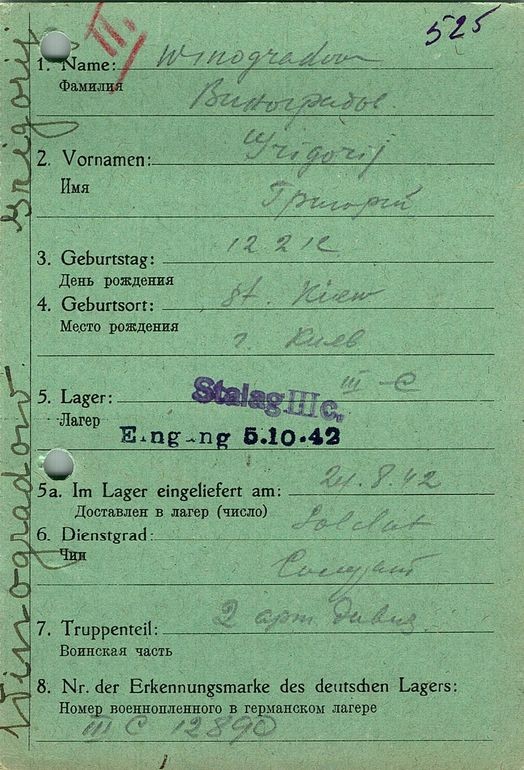 525
II.
1. Name: Winogradow
Фамилия
Виноградов
2. Vornamen: Grigorij
Имя
Григорий
3. Geburtstag: 12 2 12
День рождения
4. Geburtsort: St. Kiew
Место рождения
г. Киев
5. Lager: III-C
Лагер
Stalag III c.
Eingang 5.10.42
5a. Im Lager eingeliefert am: 24.8.42
Доставлен в лагер (число)
6. Dienstgrad: Soldat
Чин
Солдат
7. Truppenteil: 2 арт. дивиз.
Воинская часть
8. Nr. der Erkennungsmarke des deutschen Lagers:
Номер военнопленного в германском лагере
III C 12890
Winogradow Grigorij